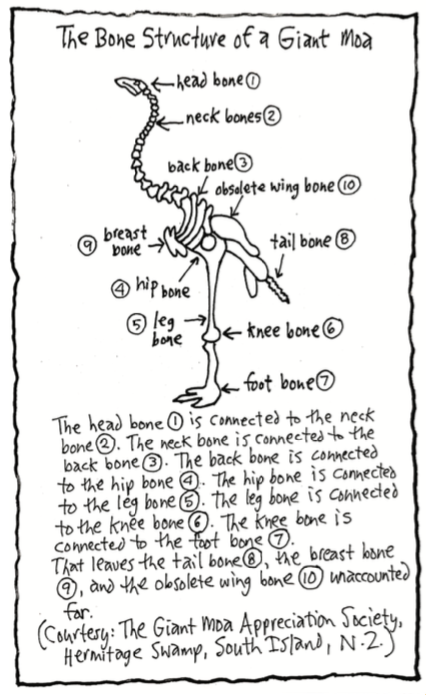 The Bone Structure of a Giant Moa
head bone ①
neck bones ②
back bone ③
obsolete wing bone ⑩
⑨ breast
bone
tail bone ⑧
④ hip
bone
⑤ leg
bone
knee bone ⑥
foot bone ⑦
The head bone ① is connected to the neck
bone ②. The neck bone is connected to the
back bone ③. The back bone is connected
to the hip bone ④. The hip bone is connected
to the leg bone ⑤. The leg bone is connected
to the knee bone ⑥. The knee bone is
connected to the foot bone ⑦.
That leaves the tail bone ⑧, the breast bone
⑨, and the obsolete wing bone ⑩ unaccounted
for.
(Courtesy: The Giant Moa Appreciation Society,
Hermitage Swamp, South Island, N.Z.)